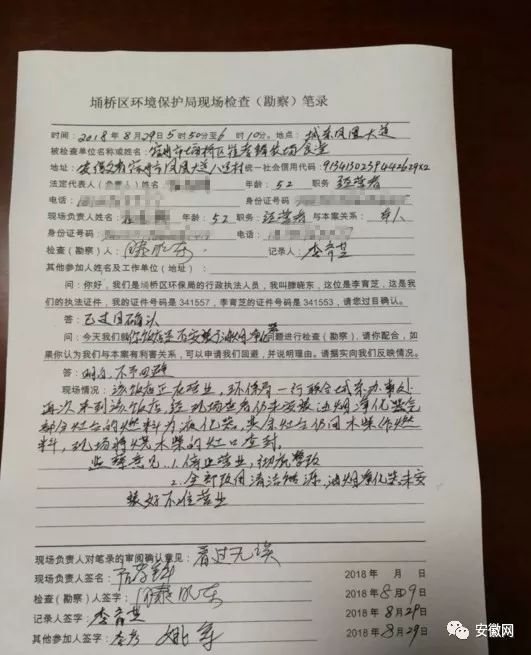 埇桥区环境保护局现场检查（勘察）笔录
时间：2018年8月29日5时50分至6时10分。地点：城东凤凰大道
被检查单位名称或姓名：宿州市埇桥区 农场食堂
地址：安徽省宿州市凤凰大道八里村 统一社会信用代码：
法定代表人（负责人）姓名 年龄：52 职务 经营者
电话： 身份证号码
现场负责人姓名： 年龄：52 职务：经营者 与本案关系：本人
身份证号码 电话：
检查（勘察）人：滕晓东 记录人：李育芝
其他参加人姓名及工作单位（地址）：
问：你好，我们是埇桥区环保局的行政执法人员，我叫滕晓东，这位是李育芝，这是我
们的执法证件，我的证件号码是341557，李育芝的证件号码是341553，请您过目确认。
答：已过目确认
问：今天我们就你饭店是否安装了油烟净化器问题进行检查（勘察），请你配合，如
果你认为我们与本案有利害关系，可以申请我们回避，并说明理由。请据实向我们反映情况。
答：明白，不予回避
现场情况：该饭店正在营业，环保局一行联合城东办事处
再次来到该饭店，经现场查看仍未安装油烟净化器，
部分灶台的燃料为液化气，其余灶台仍用木柴作燃
料，现场将烧木柴的灶口查封。
监察意见：1.停止营业，彻底整改
2.全部改用清洁能源，油烟净化器未安
装好不准营业
现场负责人对笔录的审阅确认意见：看过无误
现场负责人签名： 2018年 月 日
检查（勘察）人签字：滕晓东 2018年8月29日
记录人签字：李育芝 2018年8月29日
其他参加人签字：李彦 姚军 2018年8月29日
安徽网